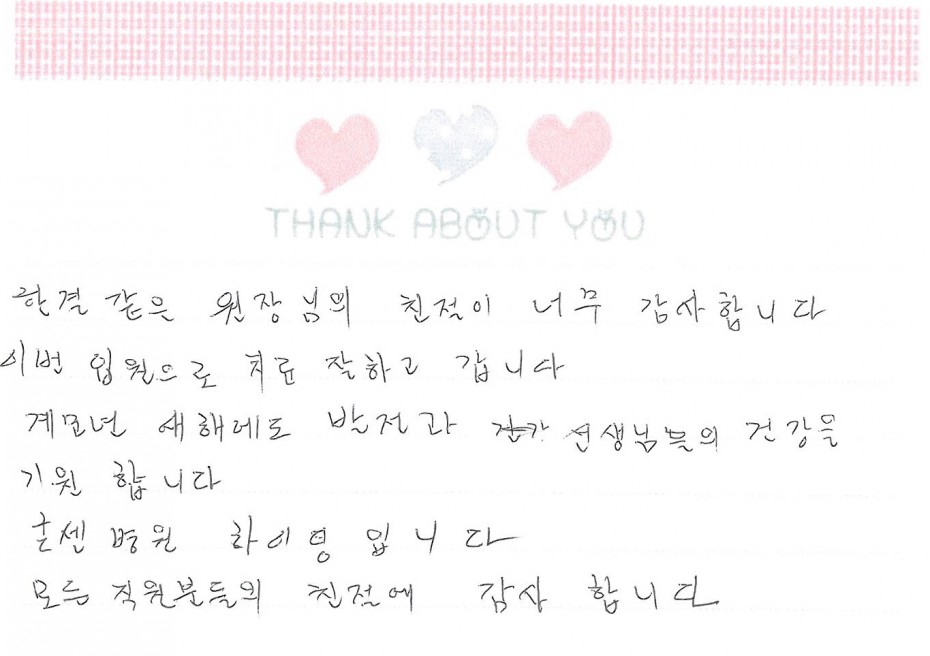 THANK ABOUT YOU
한결 같은 원장님의 친절이 너무 감사합니다
이번 입원으로 치료 잘하고 갑니다
계묘년 새해에도 발전과 선생님들의 건강을
기원 합니다
굳센 병원 화이팅 입니다
모든 직원분들의 친절에 감사 합니다